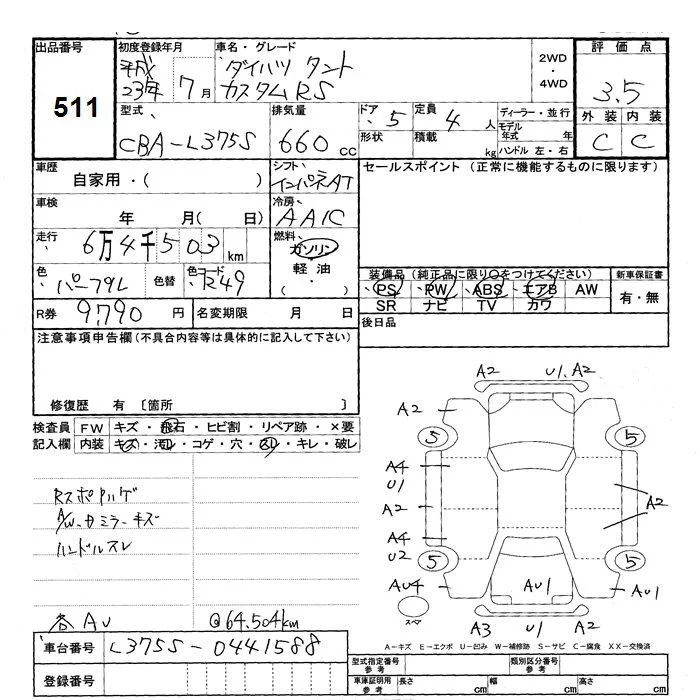 出品番号 初度登録年月 車名・グレード 2WD ・ 4WD 評価点
511 平成 23年 7月 ダイハツ タント カスタムRS 3.5
外装 内装
C C
型式、 排気量 ドア 定員 ディーラー・並行
CBA-L375S 660 cc 5 4人 モデル年式 年
形状 積載 kg ハンドル 左・右
車歴 シフト、 セールスポイント (正常に機能するものに限ります)
自家用・( ) インパネAT
車検 冷房、
年 月( 日) AAC
走行 燃料、
6万4千503km ガソリン・軽油・( )
色 色替 色コード
パープル R49
装備品 (純正品に限り○をつけてください) 新車保証書
PS PW ABS エアB AW 有・無
SR ナビ TV カワ
R券 9,790円 名変期限 月 日 後日品
注意事項申告欄(不具合内容等は具体的に記入して下さい)
修復歴 有 〔箇所 〕
検査員 FW キズ・飛石・ヒビ割・リペア跡・×要
記入欄 内装 キズ・汚れ・コゲ・穴・スレ・キレ・破レ
A2 U1. A2
A2
5 5
A4
U1
A2 A2
A4
U2
5 5
AU4 AU1 AU1
スペア
A3 U1 A2
Rスポハゲ
A/W・ミラーキズ
ハンドルスレ
各AU @64.504km
A-キズ E-エクボ U-凹み W-補修跡 S-サビ C-腐食 XX-交換済
車台番号 L375S-0441588
登録番号
型式指定番号 参考 類別区分番号 参考
車庫証明用 参考 長さ cm 幅 cm 高さ cm